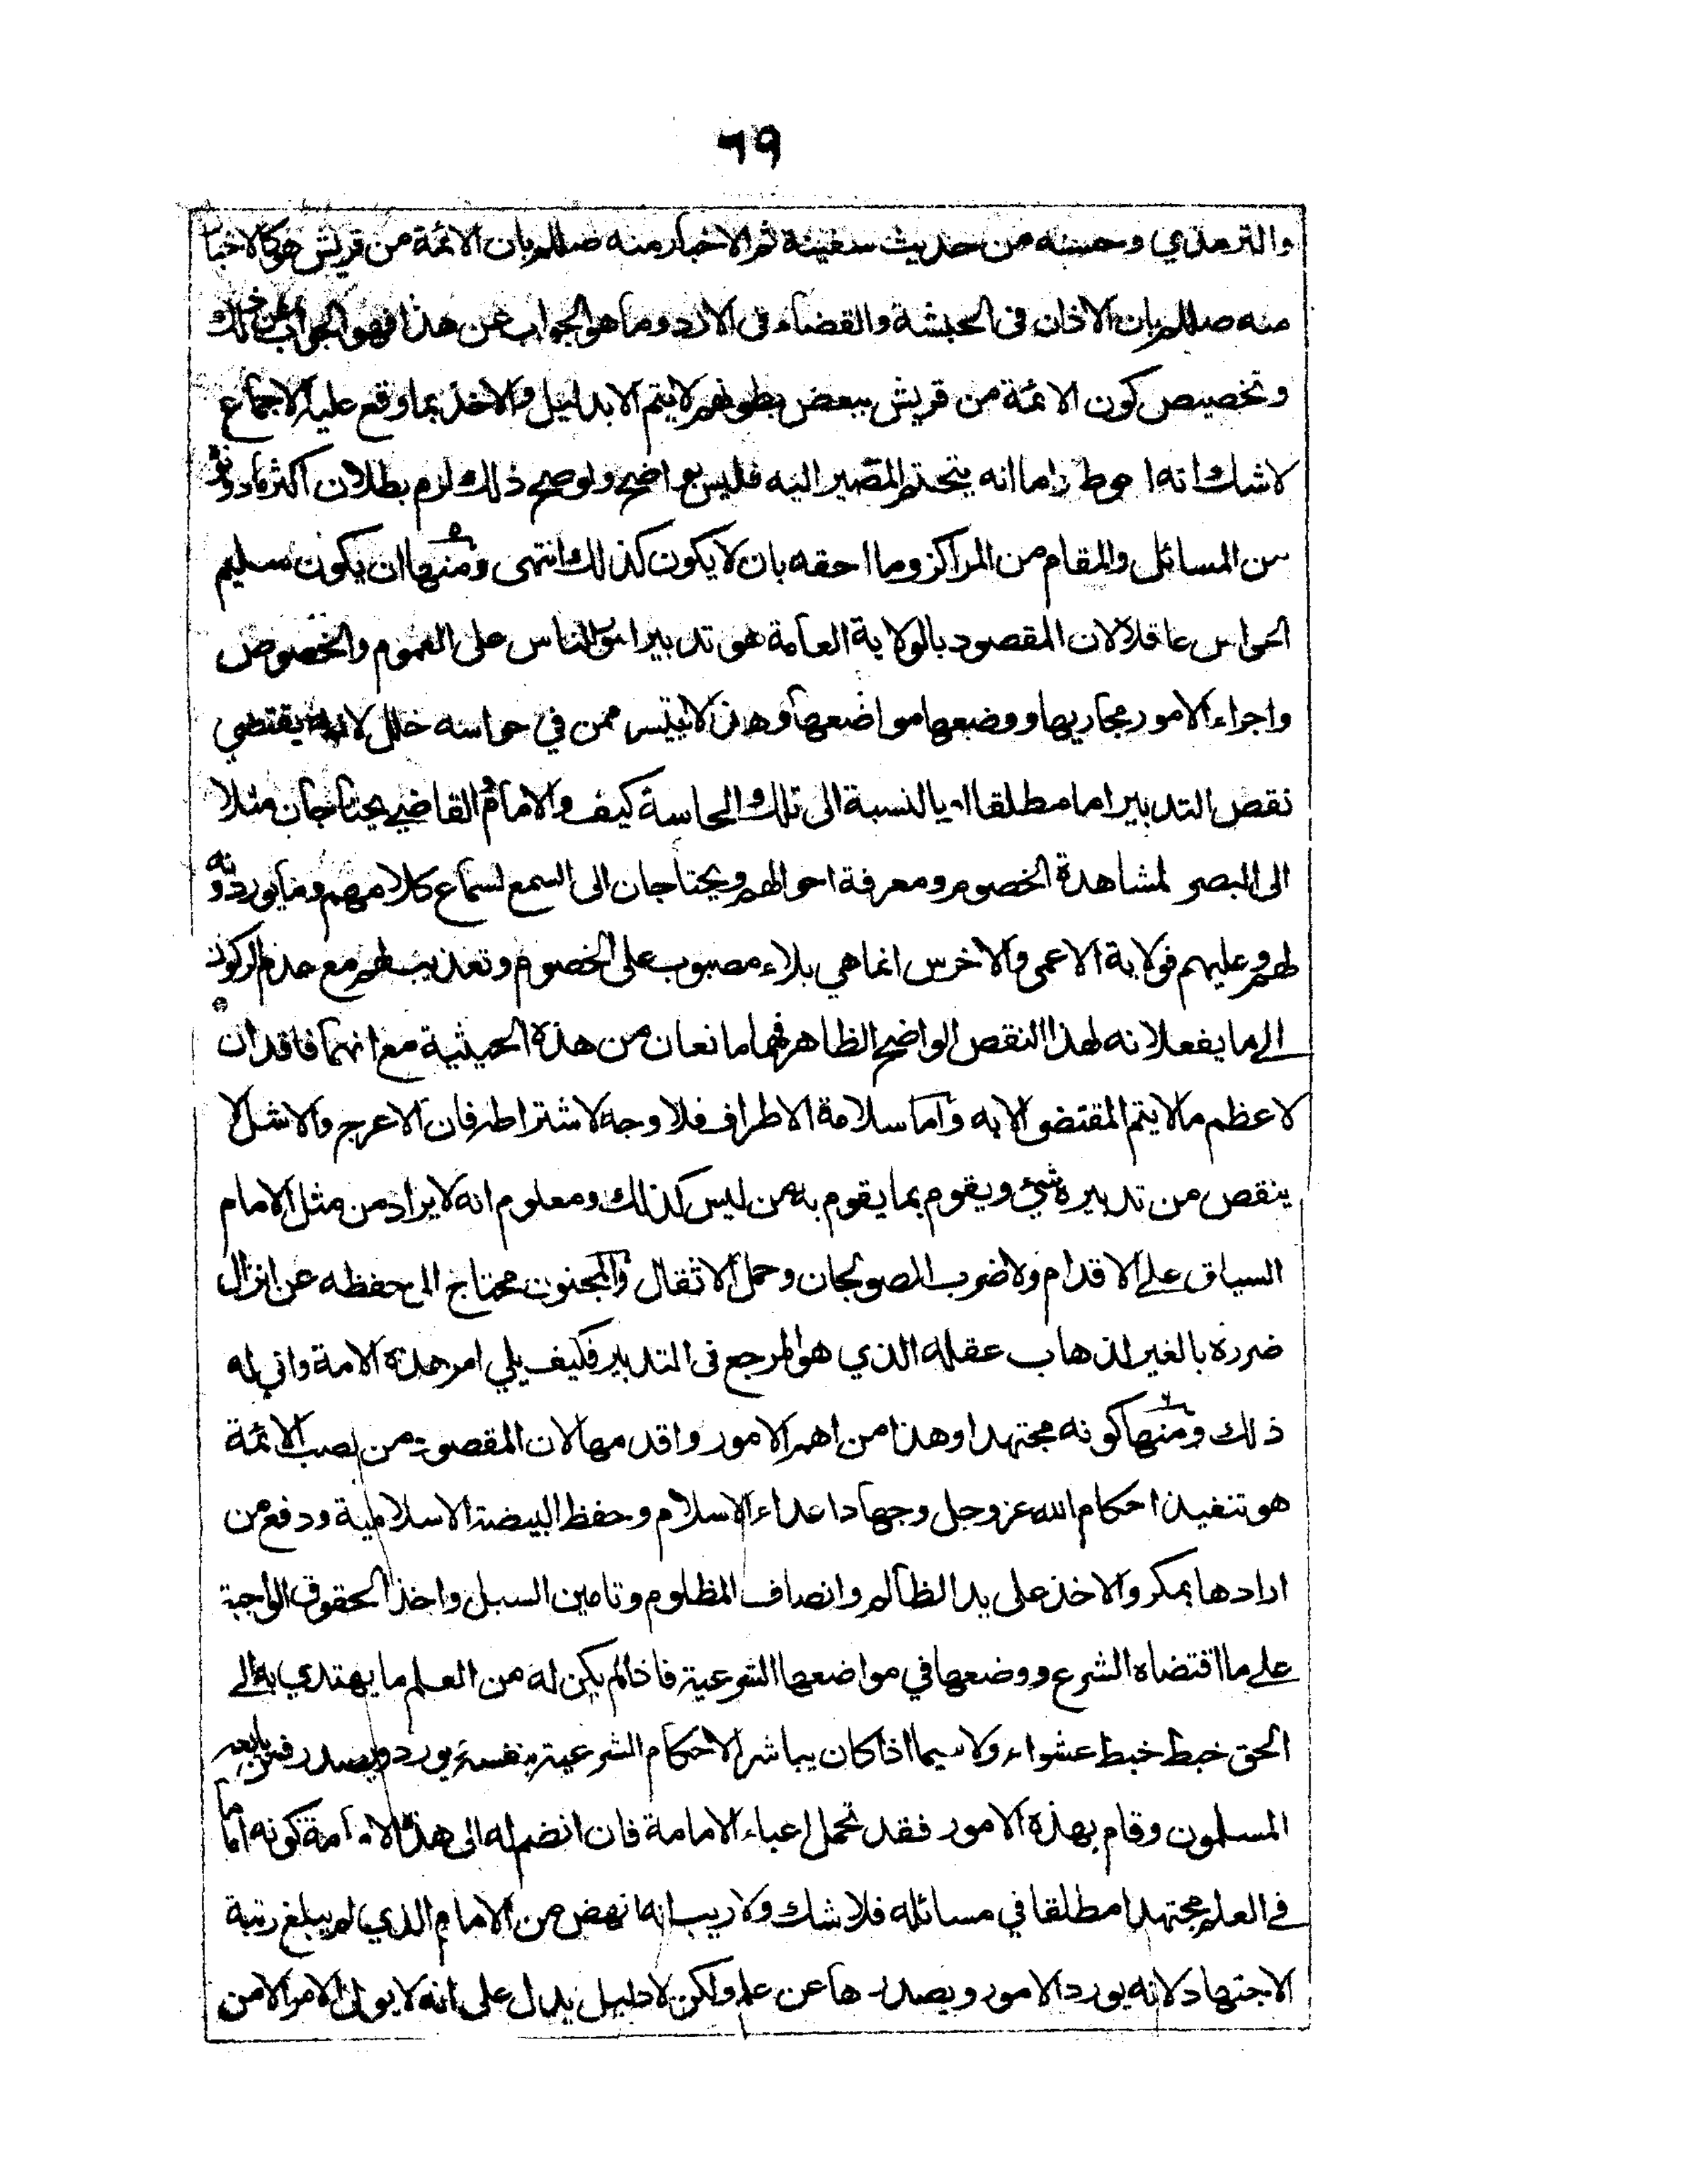 ٦٩
والترمذي وحسنه من حديث سفينة ثم الاخبار منه صللم بان الائمة من قريش هو كالاخبا
منه صللم بان الاذان فى الحبشة والقضاء فى الازد وما هو الجواب عن هذا فهو الجواب عن ذلك
وتخصيص كون الائمة من قريش ببعض بطونهم لا يتم الا بدليل والاخذ بما وقع عليه الاجماع
لا شك انه احوط واما انه يتحتم المصير اليه فليس بواضح ولو صح ذلك لزم بطلان اكثر ما دونوه
من المسائل والمقام من المراكز وما احقه بان لا يكون كذلك انتهى ومنها ان يكون سليم
الحواس عاقلا لان المقصود بالولاية العامة هو تدبير امور الناس على العموم والخصوص
واجراء الامور مجاريها ووضعها مواضعها وهذا لا يتيسر ممن في حواسه خلل لانه يقتضي
نقص التدبير اما مطلقا او بالنسبة الى تلك الحاسة كيف والامام والقاضي يحتاجان مثلا
الى البصر لمشاهدة الخصوم ومعرفة احوالهم ويحتاجان الى السمع لسماع كلامهم وما يوردونه
لهم وعليهم فولاية الاعمى والاخرس انما هي بلاء مصبوب على الخصوم وتعذيب لهم مع عدم الركون
الى ما يفعلانه لهذا النقص الواضح الظاهر فهما مانعان من هذه الحيثية مع انهما فاقدان
لاعظم ما لا يتم المقتضى الا به واما سلامة الاطراف فلا وجه لاشتراطه فان الاعرج والاشل لا
ينقص من تدبيره شئ ويقوم بما يقوم به من ليس كذلك ومعلوم انه لا يراد من مثل الامام
السباق على الاقدام ولا ضرب الصولجان وحمل الاثقال والمجنون محتاج الى حفظه عن انزال
ضرره بالغير لذهاب عقله الذي هو المرجع فى التدبير فكيف يلي امر هذه الامة واني له
ذلك ومنها كونه مجتهدا وهذا من اهم الامور واقدمها لان المقصود من نصب الائمة
هو تنفيذ احكام الله عز وجل وجهاد اعداء الاسلام وحفظ البيضة الاسلامية ودفع من
ارادها بمكر والاخذ على يد الظالم وانصاف المظلوم وتامين السبل واخذ الحقوق الواجبة
على ما اقتضاه الشرع ووضعها في مواضعها الشرعية فاذا لم يكن له من العلم ما يهتدي به الى
الحق خبط خبط عشواء ولا سيما اذا كان يباشر الاحكام الشرعية بنفسه يورد ويصدر فمن بايعه
المسلمون وقام بهذه الامور فقد تحمل اعباء الامامة فان انضم له الى هذه الامامة كونه اماما
في العلم مجتهدا مطلقا في مسائله فلا شك ولا ريب انه انهض من الامام الذي لم يبلغ رتبة
الاجتهاد لانه يورد الامور ويصدرها عن علم ولكن لا دليل يدل على انه لا يولى الامر الا من